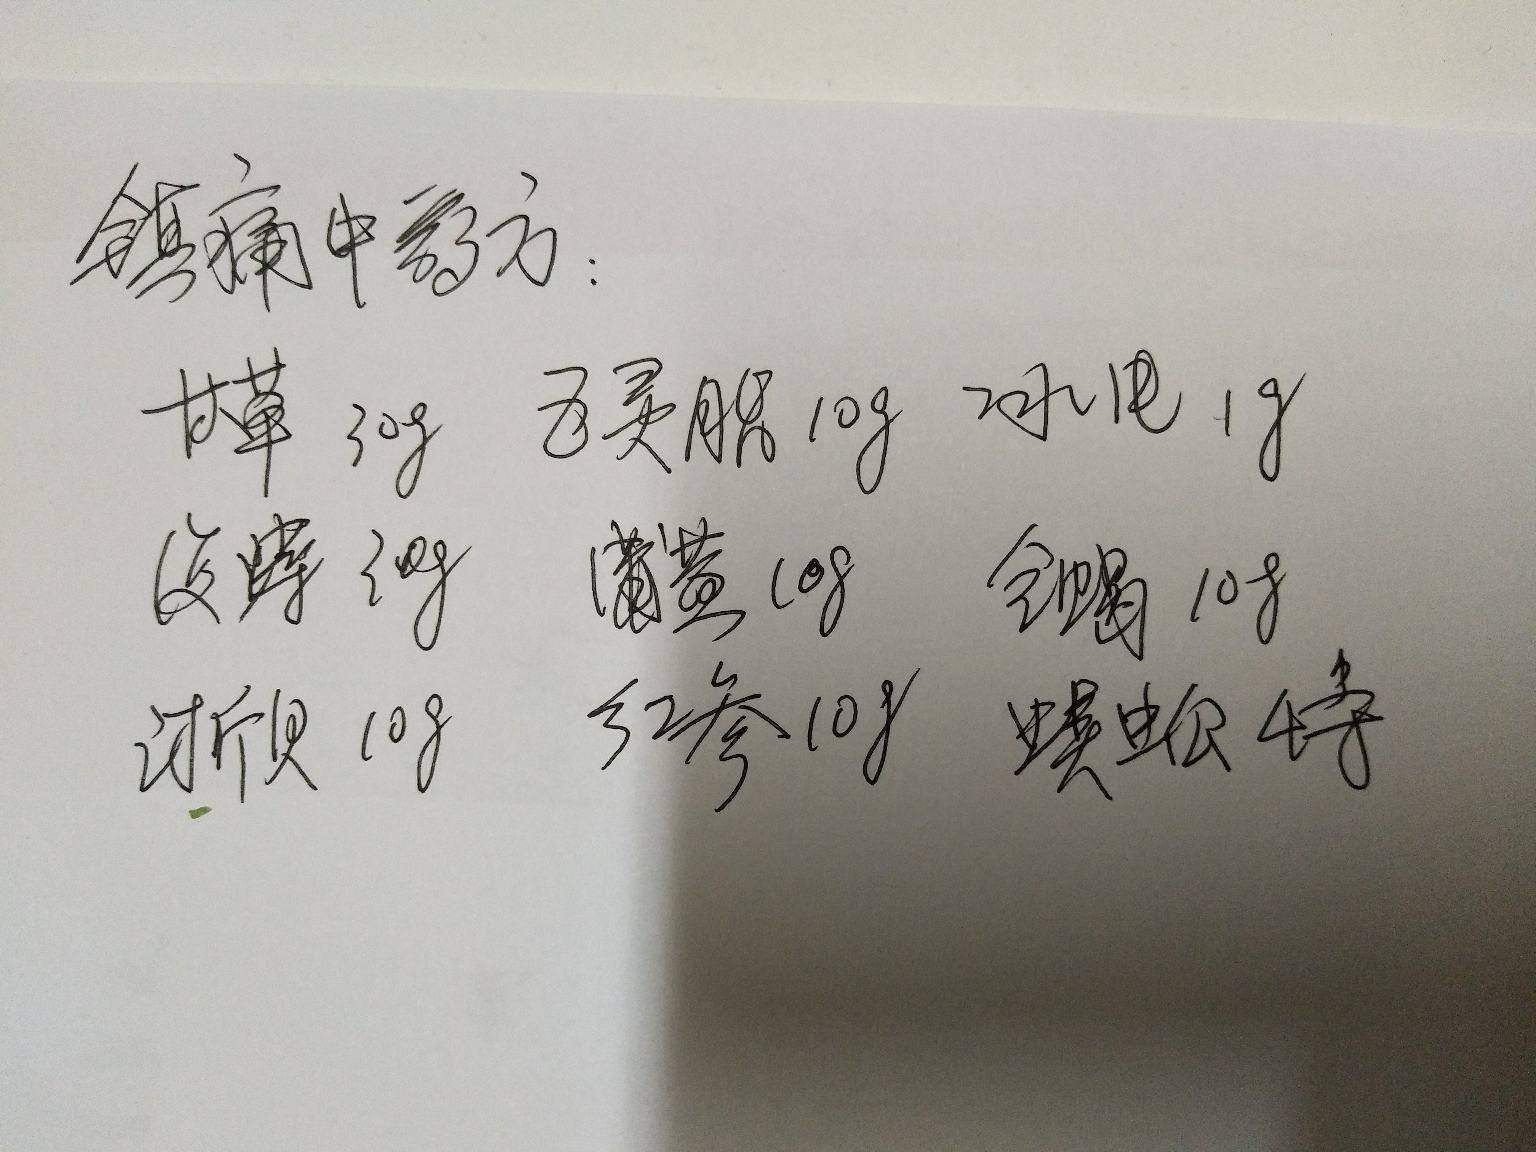 镇痛中药方：
甘草 30g 五灵脂 10g 冰片 1g
没药 30g 蒲黄 10g 全蝎 10g
浙贝 10g 红参 10g 蜈蚣 4条